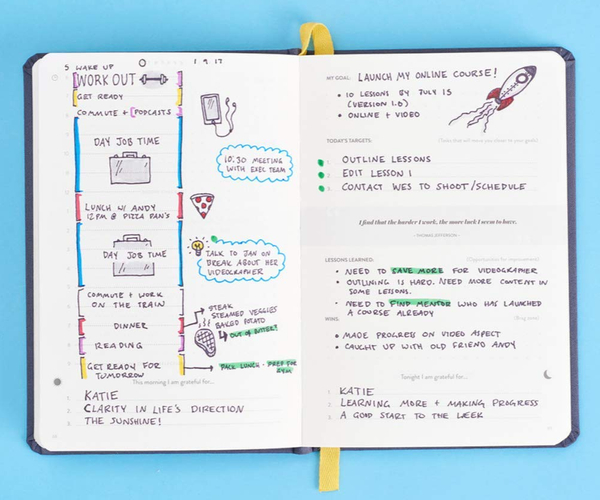 5 WAKE UP
1 9 17
WORK OUT
GET READY
COMMUTE + PODCASTS
DAY JOB TIME
10:30 MEETING
WITH EXEC TEAM
LUNCH W/ ANDY
12PM @ PIZZA DAN'S
DAY JOB TIME
TALK TO JAN ON
BREAK ABOUT HER
VIDEOGRAPHER
COMMUTE + WORK
ON THE TRAIN
STEAK
STEAMED VEGGIES
BAKED POTATO
OUT OF BUTTER!
DINNER
READING
GET READY FOR
TOMORROW
PACK LUNCH · PREP FOR
GYM
This morning I am grateful for...
1. KATIE
2. CLARITY IN LIFE'S DIRECTION
3. THE SUNSHINE!
MY GOAL: LAUNCH MY ONLINE COURSE!
• 10 LESSONS BY JULY 15
(VERSION 1.0)
• ONLINE + VIDEO
TODAY'S TARGETS:
1. OUTLINE LESSONS
2. EDIT LESSON 1
3. CONTACT WES TO SHOOT/SCHEDULE
I find that the harder I work, the more luck I seem to have.
- THOMAS JEFFERSON -
LESSONS LEARNED: (Opportunities for improvement)
• NEED TO SAVE MORE FOR VIDEOGRAPHER
• OUTLINING IS HARD. NEED MORE CONTENT IN
SOME LESSONS.
• NEED TO FIND MENTOR WHO HAS LAUNCHED
A COURSE ALREADY
WINS:
• MADE PROGRESS ON VIDEO ASPECT
• CAUGHT UP WITH OLD FRIEND ANDY
Tonight I am grateful for...
1. KATIE
2. LEARNING MORE + MAKING PROGRESS
3. A GOOD START TO THE WEEK